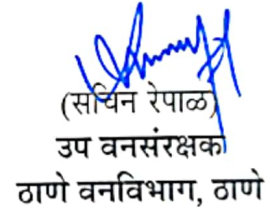 (सचिन रेपाळ)
उप वनसंरक्षक
ठाणे वनविभाग, ठाणे